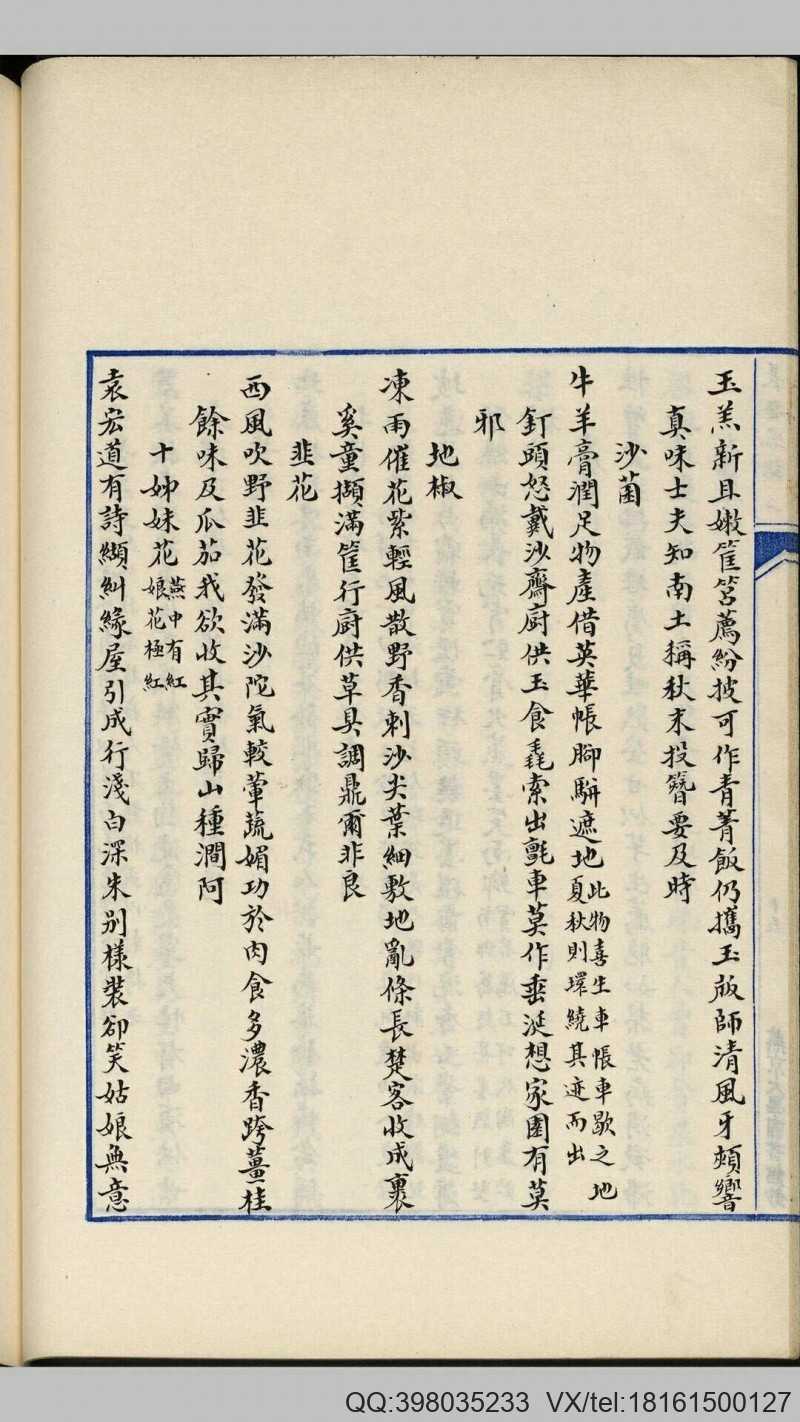 玉羔新且嫩筐筥薦紛披可作青菁飯仍攜玉版師清風牙頰響
真味士夫知南土稱秋末投簪要及時
沙菌
牛羊膏潤足物產借英華帳腳駢遮地此物喜生車帳車歇之地夏秋則環繞其迹而出
釘頭怒戴沙齋厨供玉食毳索出氊車莫作垂涎想家園有莫
邪
地椒
凍雨催花紫輕風散野香刺沙尖葉細敷地亂條長楚客收成裹
奚童擷滿筐行厨供草具調鼎爾非良
韭花
西風吹野韭花發滿沙陀氣較葷蔬媚功於肉食多濃香跨薑桂
餘味及瓜茄我欲收其實歸山種澗阿
十姊妹花燕中有紅娘花極紅
袁宏道有詩纈糾緣屋引成行淺白深朱別樣裝卻笑姑娘無意
QQ:398035233 VX/tel:18161500127